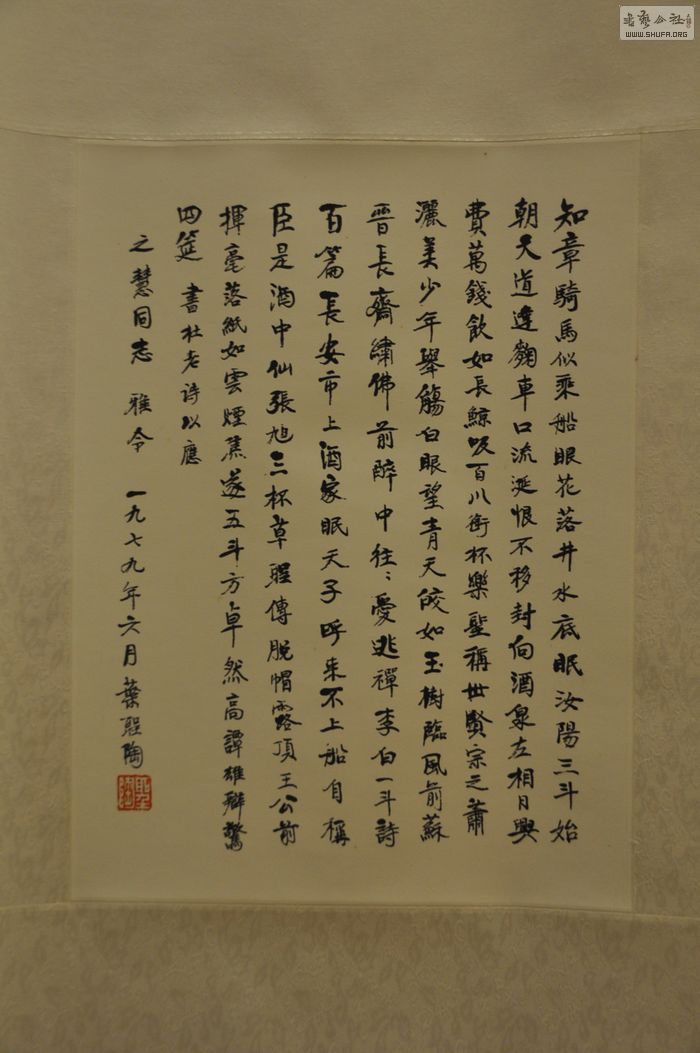 知章騎馬似乘船眼花落井水底眠汝陽三斗始
朝天道逢麴車口流涎恨不移封向酒泉左相日興
費萬錢飲如長鯨吸百川銜杯樂聖稱世賢宗之蕭
灑美少年舉觴白眼望青天皎如玉樹臨風前蘇
晉長齋繡佛前醉中往〻愛逃禪李白一斗詩
百篇長安市上酒家眠天子呼來不上船自稱
臣是酒中仙張旭三杯草聖傳脫帽露頂王公前
揮毫落紙如雲煙蕉遂五斗方卓然高譚雄辯驚
四筵 書杜老詩以應
之慧同志 雅令 一九七九年六月 葉聖陶
聖陶
書藝公社
WWW.SHUFA.ORG